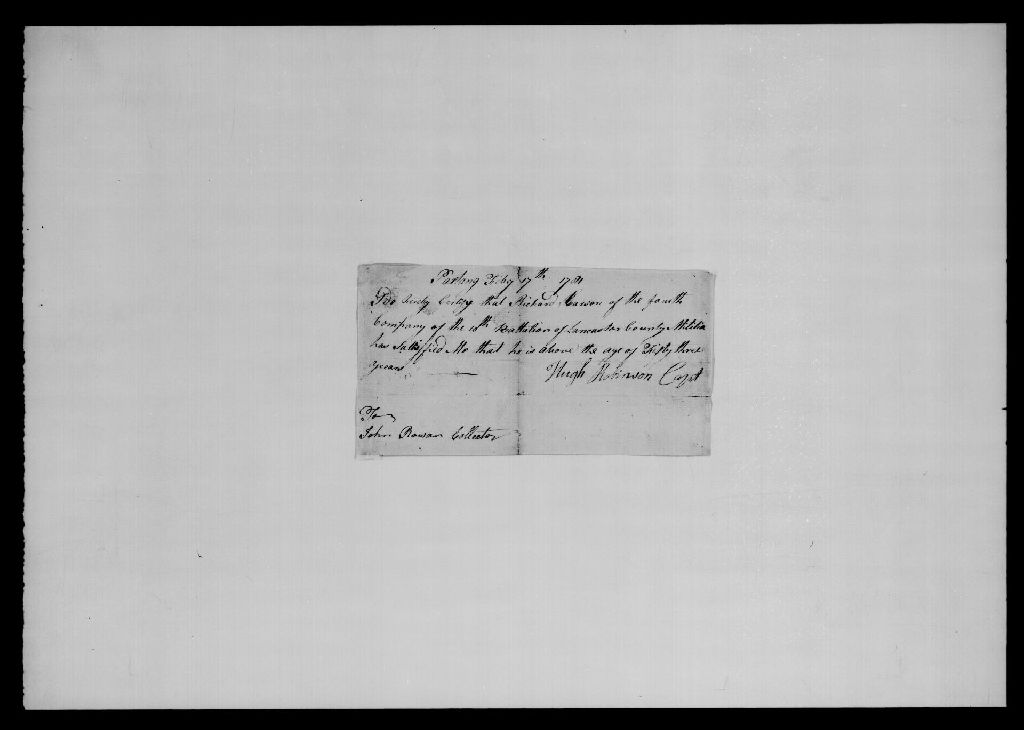 Paxtang Feby 17th 1781
I do hereby Certify that Richard of the fourth
Company of the 10th Battalion of Lancaster County Militia
has Sattisfied Me that he is above the age of Fifty three
years Hugh Robinson Capt
To
John Rowan Collector